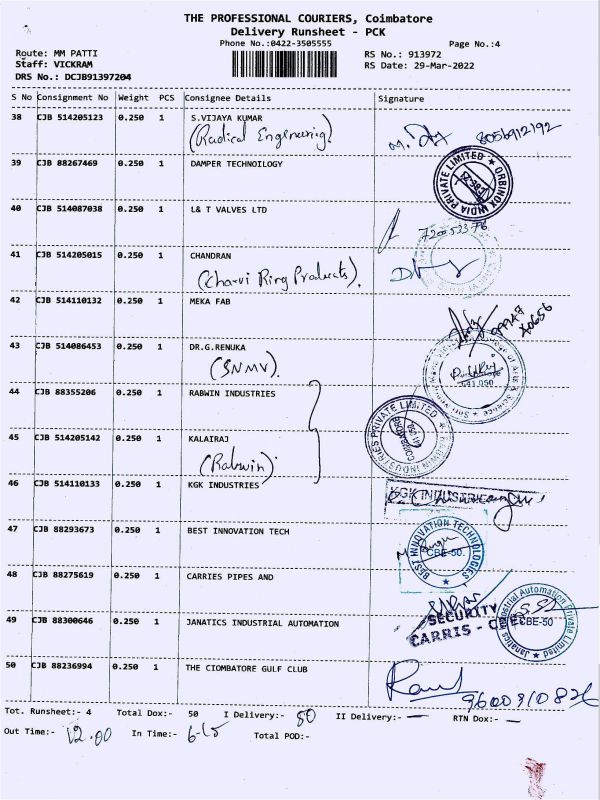 THE PROFESSIONAL COURIERS, Coimbatore
Delivery Runsheet - PCK
Phone No.:0422-3505555
Page No.:4
Route: MM PATTI
RS No.: 913972
Staff: VICKRAM
RS Date: 29-Mar-2022
DRS No.: DCJB91397204
S No Consignment No Weight PCS Consignee Details Signature
38 CJB 514205123 0.250 1 S.VIJAYA KUMAR
(Radical Engineering) 8056912192
39 CJB 88267469 0.250 1 DAMPER TECHNOILOGY
ORBINOX INDIA PRIVATE LIMITED
40 CJB 514087038 0.250 1 L& T VALVES LTD
41 CJB 514205015 0.250 1 CHANDRAN
(Charvi Ring Products).
42 CJB 514110132 0.250 1 MEKA FAB
43 CJB 514086453 0.250 1 DR.G.RENUKA
(SNMV).
641 050
44 CJB 88355206 0.250 1 RABWIN INDUSTRIES
RABWIN INDUSTRIES PRIVATE LIMITED
COIMBATORE
45 CJB 514205142 0.250 1 KALAIRAJ
(Rabwin)
46 CJB 514110133 0.250 1 KGK INDUSTRIES
KGK INDUSTRIES
47 CJB 88293673 0.250 1 BEST INNOVATION TECH
BEST INNOVATION TECHNOLOGIES
CBE-50.
48 CJB 88275619 0.250 1 CARRIES PIPES AND
SECURITY
CARRIS - CBE
49 CJB 88300646 0.250 1 JANATICS INDUSTRIAL AUTOMATION
Janatics Industrial Automation Private Limited
CBE-50
50 CJB 88236994 0.250 1 THE CIOMBATORE GULF CLUB
9600910826
Tot. Runsheet:- 4 Total Dox:- 50 I Delivery:- 50 II Delivery:- — RTN Dox:- —
Out Time:- 12.00 In Time:- 6-15 Total POD:-